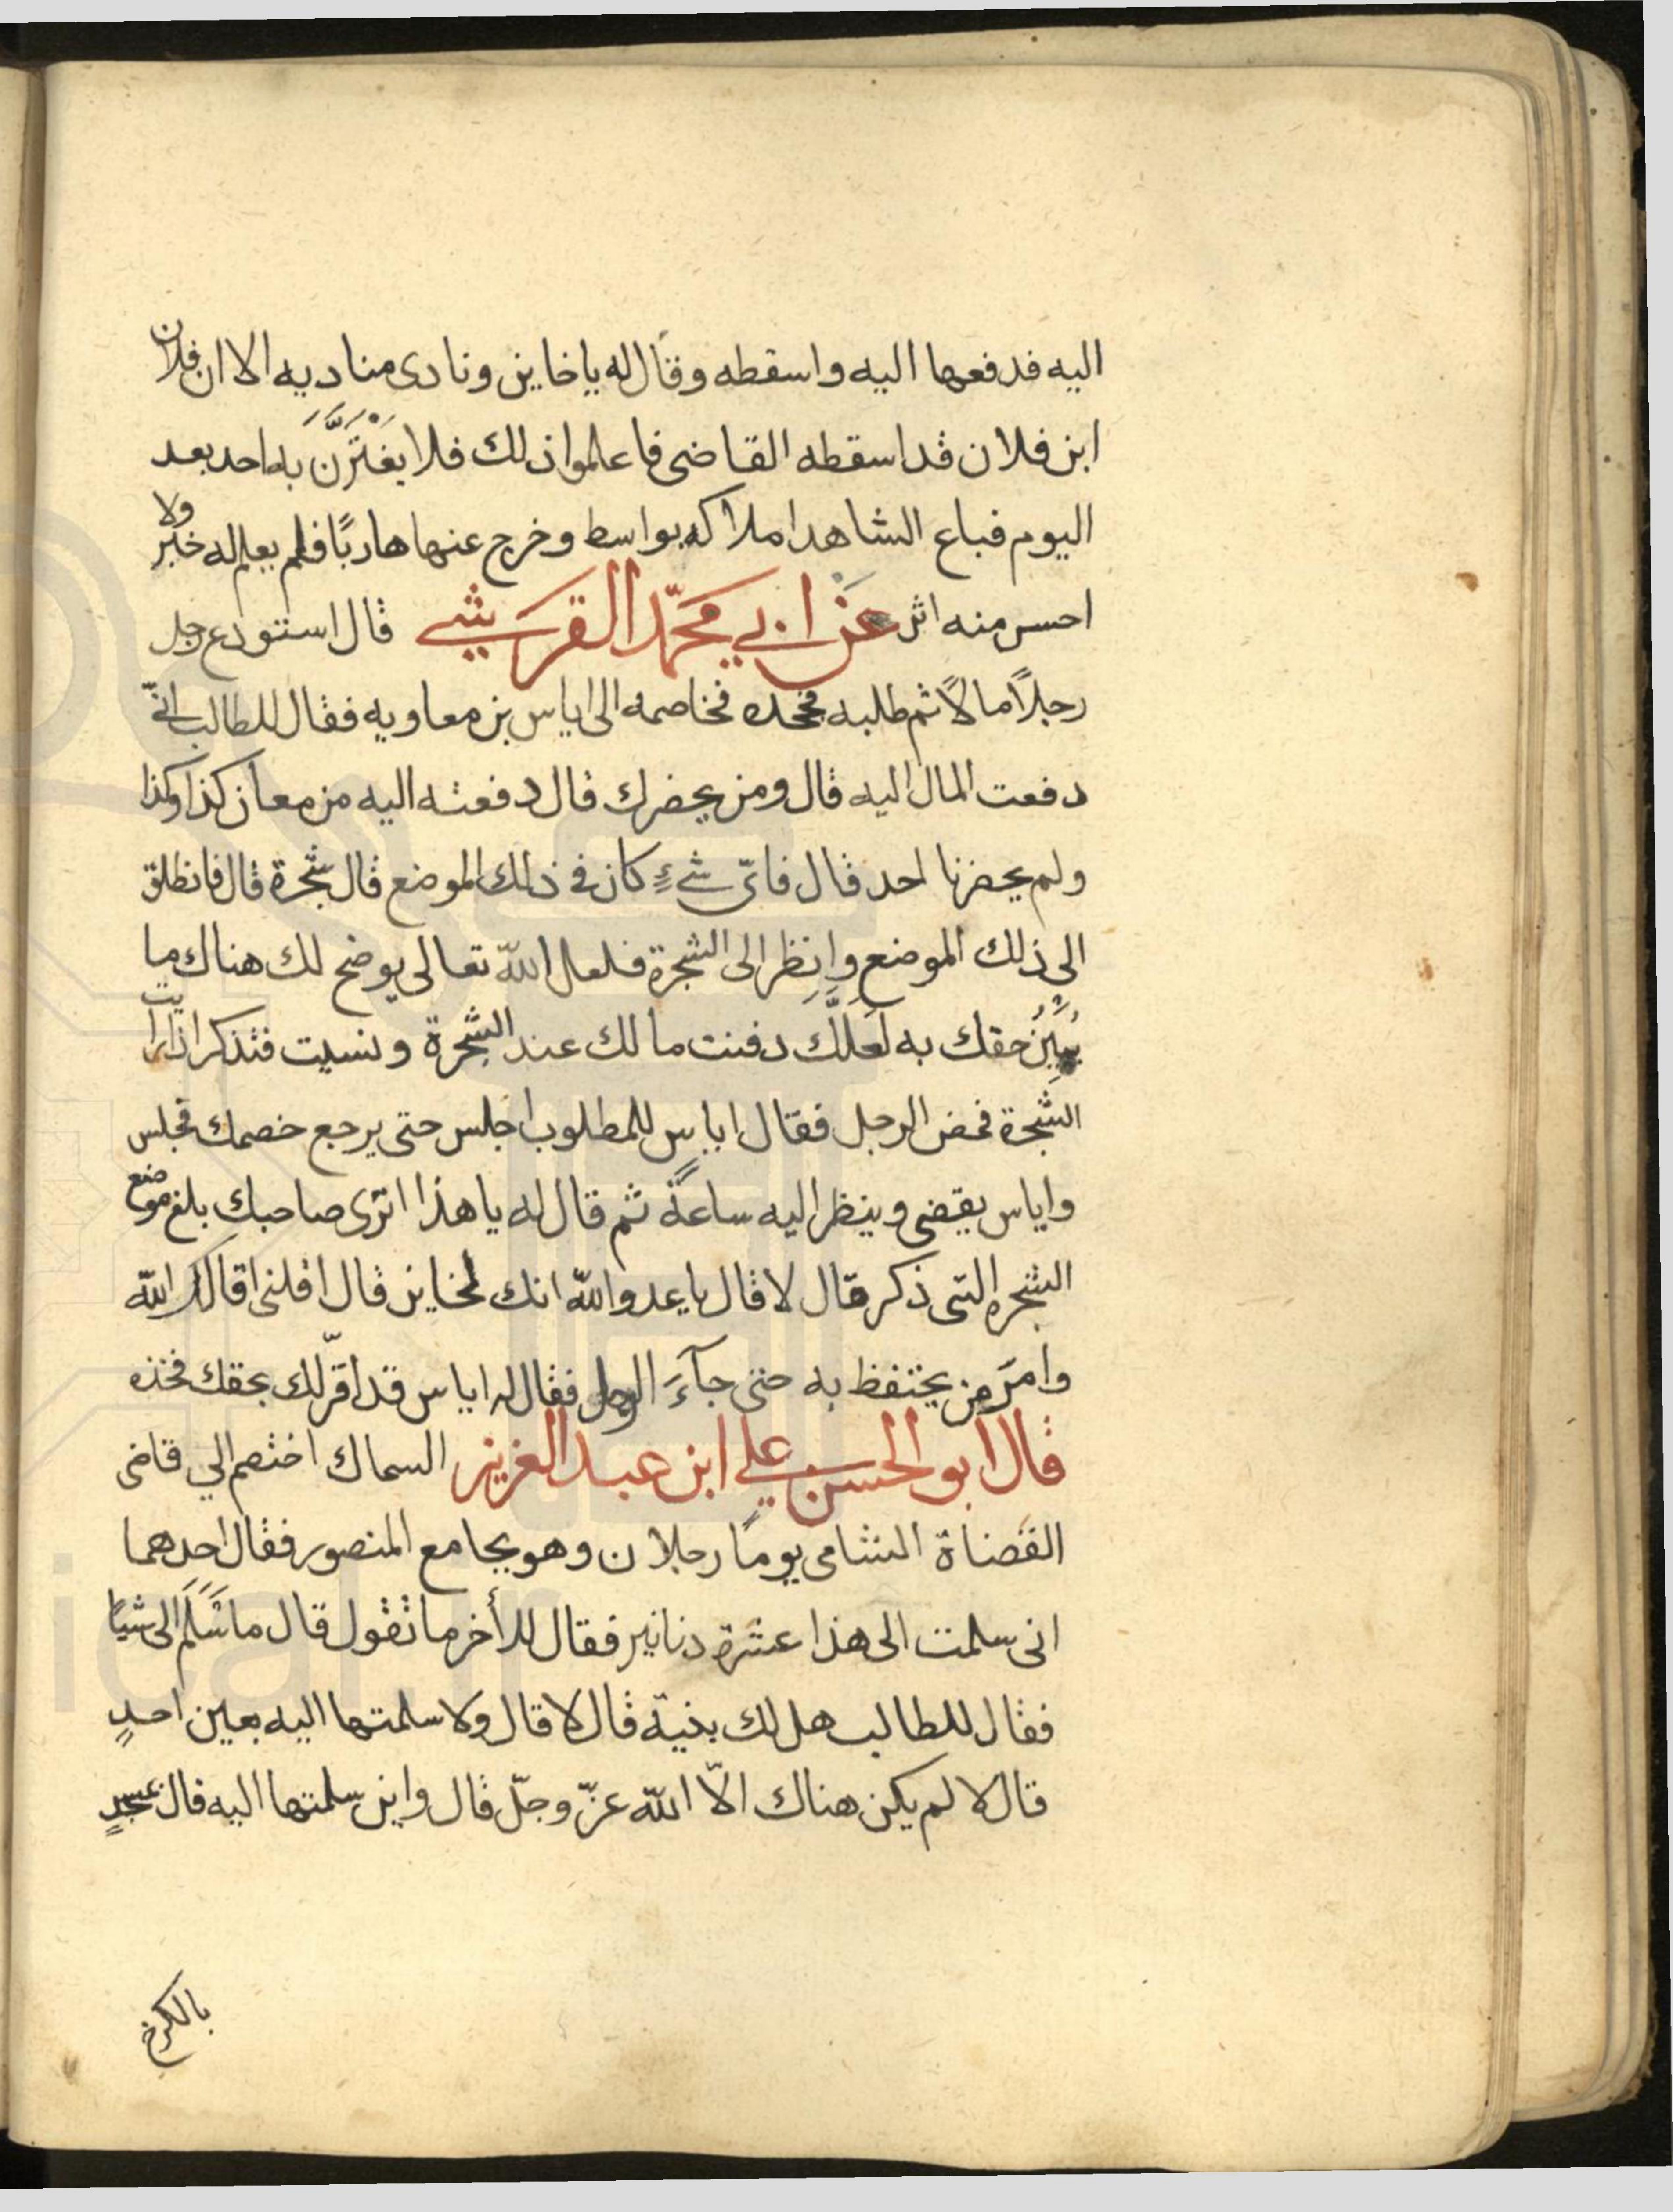 اليه فدفعها اليه واسقطه وقال له ياخاين ونادى مناديه الا ان فلان
ابن فلان قد اسقطه القاضى فاعلموا ذلك فلا يغْتَرَّنَّ به احد بعد
اليوم فباع الشاهد املاكه بواسط وخرج عنها هاربًا فلم يعلم له خبر ولا
احسر منه اثر عن ابي محمّد القريشي قال استودع رجل
رجلاً مالاً ثم طلبه فجحده فخاصمه الى اياس بن معاويه فقال للطالب انّى
دفعت المال اليه قال ومن يحضرك قال دفعته اليه من معان كذا وكذا
ولم يحضرنا احد قال فاىّ شىءٍ كان فى ذلك الموضع قال شجرة قال فانطلق
الى ذلك الموضع وانظر الى الشجرة فلعل الله تعالى يوضح لك هناك ما
يُبَيِّنُ حقك به لَعَلَّكَ دفنت مالك عند الشجرة ونسيت فتذكر اذا رايت
الشجرة فمضى الرجل فقال اياس للمطلوب اجلس حتى يرجع خصمك فجلس
واياس يقضى وينظر اليه ساعةً ثم قال له يا هذا اترى صاحبك بلغ موضع
الشجره التى ذكر قال لا قال ياعدو الله انك لخاين قال اقلنى اقالك الله
وامرَ من يحتفظ به حتى جآءَ الرجل فقال له اياس قد اقرّ لك بحقك فخذه
قال ابو الحسن علي ابن عبد العزيز السماك اختصم الي قاضى
القضاة الشامى يومًا رجلان وهو بجامع المنصور فقال احدهما
انى سلمت الى هذا عشرة دنانير فقال للأخر ما تقول قال ما سَلَّمَ الى شيًا
فقال للطالب هل لك بنيّة قال لا قال ولا سلمتها اليه بعين احدٍ
قال لا لم يكن هناك الاّ الله عزّ وجلّ قال واين سلمتها اليه قال بمسجدٍ
بالكرخ